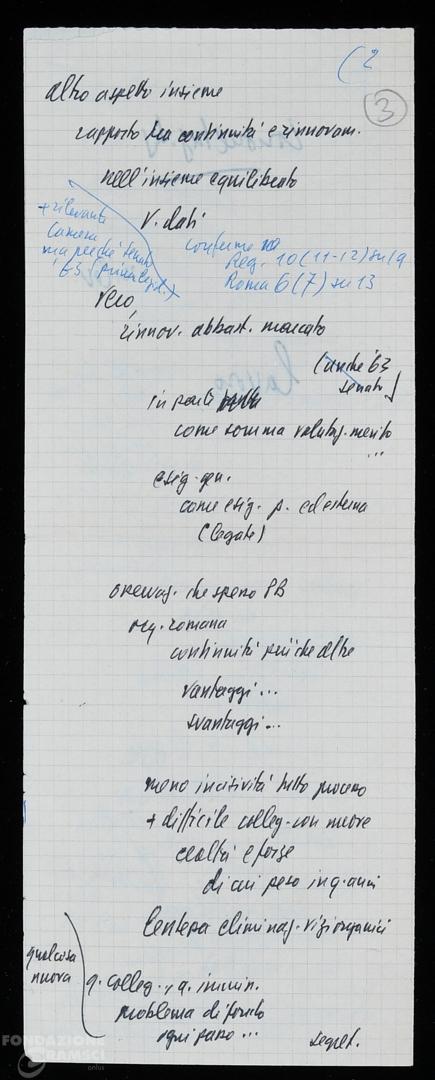 (2
3
altro aspetto insieme
rapporto tra continuità e rinnovam.
nell'insieme equilibrato
V. dati
+ rilevante
Camera
ma perché Senato
'63 (
conferme
Reg. 10 (11-12) su 19
Roma 6 (7) su 13
Vero
rinnov. abbast. marcato
(anche '63
Senato)
in parte
come somma valutaz. merito
...
esig. gen.
come esig. p. ed esterna
(legate)
osservaz. che spero PB
reg. romana
continuità più che altre
vantaggi...
svantaggi...
meno incisività tutto processo
+ difficile colleg. con nuove
realtà e forze
di cui peso in q. anni
lentezza eliminaz. vizi organici
qualcosa
nuova
q. colleg., q. immin.
problema di fondo
ogni passo ...
segret.
FONDAZIONE
GRAMSCI
onlus